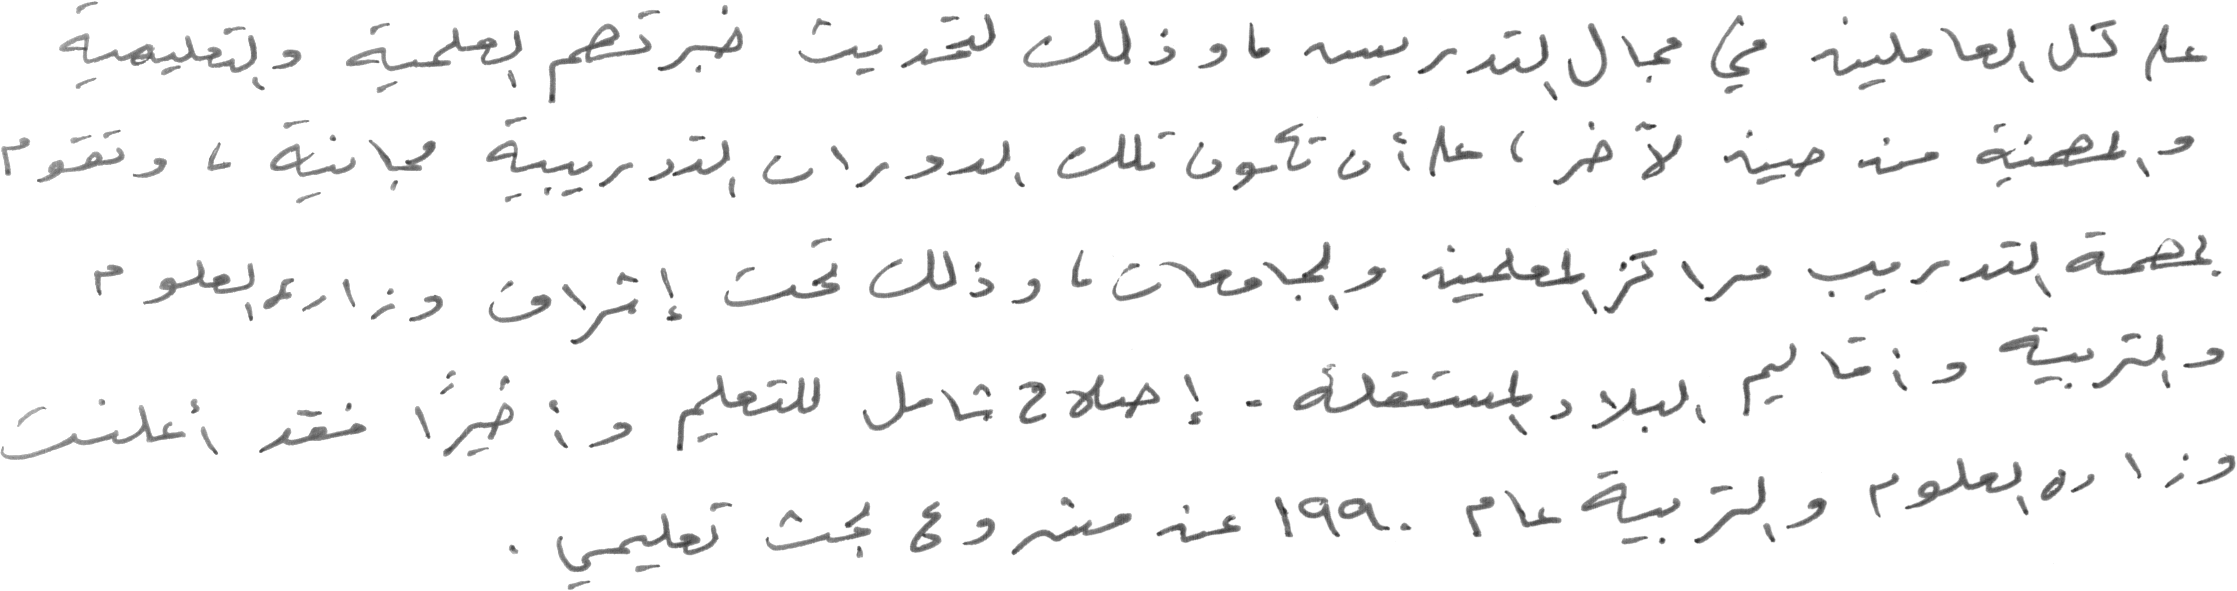 على كل العاملين في مجال التدريس، وذلك لتحديث خبرتهم العلمية والتعليمية
والمهنية من حين لآخر، على أن تكون تلك الدورات التدريبية مجانية، وتقوم
بمهمة التدريب مراكز المعلمين والجامعات، وذلك تحت إشراف وزارة العلوم
والتربية وأقاليم البلاد المستقلة. إصلاح شامل للتعليم وأخيرًا فقد أعلنت
وزارة العلوم والتربية عام ١٩٩٠ عن مشروع بحث تعليمي.